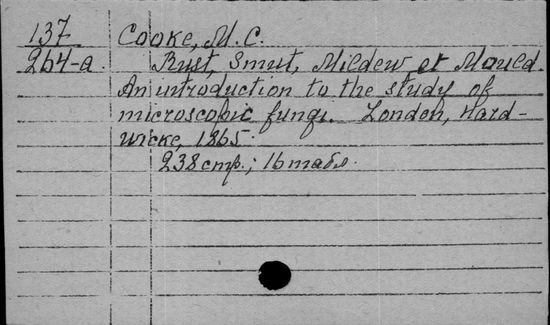 137
264-a
Cooke, M. C.
Rust, Smut, Mildew, et Mould.
An introduction to the study of
microscopic fungi. London, Hard-
wicke, 1865.
238 стр.; 16 табл.